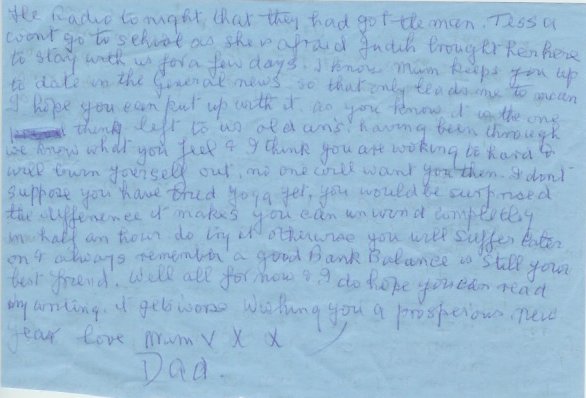 the Radio tonight, that they had got the man. Tessa
wont go to school as she is afraid Judith brought her here
to stay with us for a few days. I know Mum keeps you up
to date in the general news so that only leads me to moan
I hope you can put up with it as you know it is the one
thing left to us old uns. having been through
we know what you feel & I think you are woking to hard &
will burn yourself out, no one will want you then. I dont
suppose you have tried yoga yet, you would be surprised
the differenence it makes you can unwind completely
in half an hour do try it otherwise you will suffer later
on & always remember a good Bank Balance is still your
best friend. Well all for now & I do hope you can read
my writing. it gets worse Wishing you a prosperous new
year love Mum v X X
Dad.